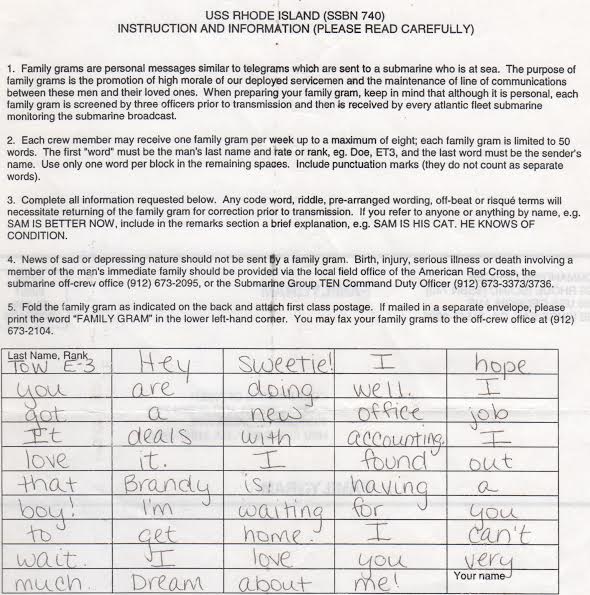 USS RHODE ISLAND (SSBN 740)
INSTRUCTION AND INFORMATION (PLEASE READ CAREFULLY)
1. Family grams are personal messages similar to telegrams which are sent to a submarine who is at sea. The purpose of
family grams is the promotion of high morale of our deployed servicemen and the maintenance of line of communications
between these men and their loved ones. When preparing your family gram, keep in mind that although it is personal, each
family gram is screened by three officers prior to transmission and then is received by every atlantic fleet submarine
monitoring the submarine broadcast.
2. Each crew member may receive one family gram per week up to a maximum of eight; each family gram is limited to 50
words. The first "word" must be the man's last name and rate or rank, eg. Doe, ET3, and the last word must be the sender's
name. Use only one word per block in the remaining spaces. Include punctuation marks (they do not count as separate
words).
3. Complete all information requested below. Any code word, riddle, pre-arranged wording, off-beat or risqué terms will
necessitate returning of the family gram for correction prior to transmission. If you refer to anyone or anything by name, e.g.
SAM IS BETTER NOW, include in the remarks section a brief explanation, e.g. SAM IS HIS CAT. HE KNOWS OF
CONDITION.
4. News of sad or depressing nature should not be sent by a family gram. Birth, injury, serious illness or death involving a
member of the man's immediate family should be provided via the local field office of the American Red Cross, the
submarine off-crew office (912) 673-2095, or the Submarine Group TEN Command Duty Officer (912) 673-3373/3736.
5. Fold the family gram as indicated on the back and attach first class postage. If mailed in a separate envelope, please
print the word "FAMILY GRAM" in the lower left-hand corner. You may fax your family grams to the off-crew office at (912)
673-2104.
Last Name, Rank
TOW E-3 Hey sweetie! I hope
you are doing well. I
got a new office job
It deals with accounting. I
love it. I found out
that Brandy is having a
boy! I'm waiting for you
to get home. I can't
wait. I love you very
much. Dream about me! Your name